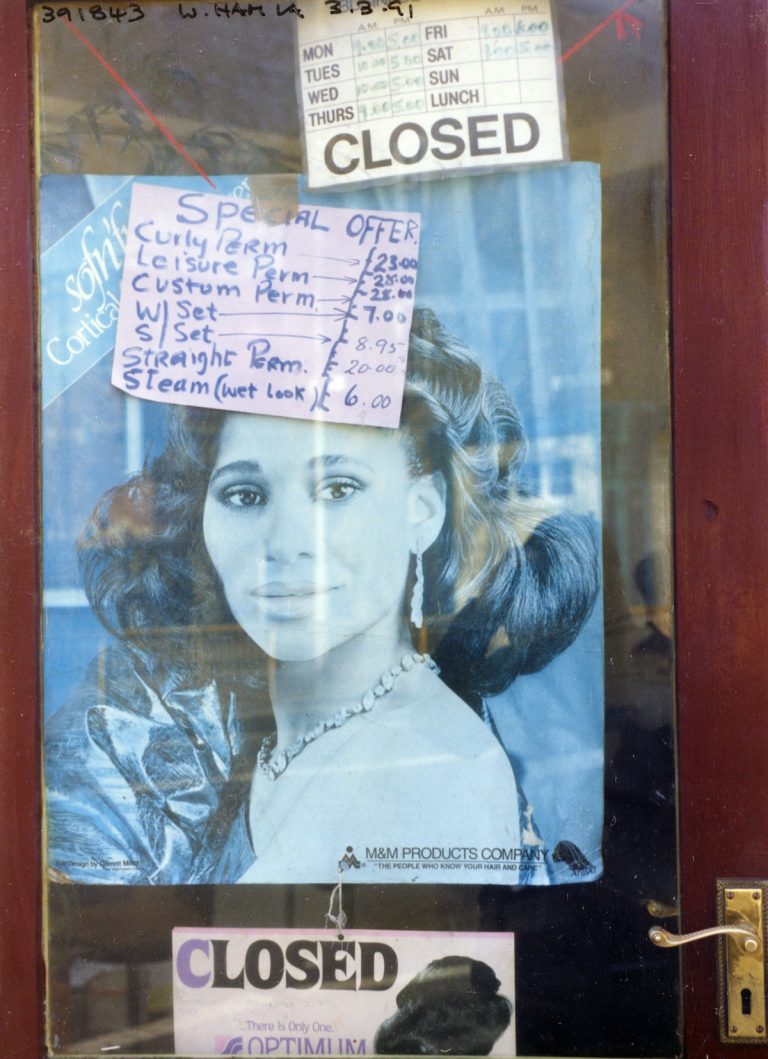 391843 W. HAM LA 3.3.91
A.M. P.M. A.M. P.M.
MON 9.00 5.00 FRI
TUES 10.00 5.00 SAT 5.00
WED 10.00 5.00 SUN
THURS 9.00 5.00 LUNCH
CLOSED
sofn'fr
Cortical
SPECIAL OFFER.
Curly PERM 23.00
Leisure Perm 28.00
Custom Perm. 28.00
W/ Set £ 7.00
S/ Set 8.95
STRAIGHT PERM. £ 20.00
STeam (wet look) £ 6.00
M&M PRODUCTS COMPANY
"THE PEOPLE WHO KNOW YOUR HAIR AND CARE"
Hair Design by Garrett
CLOSED
...There Is Only One.
OPTIMUM